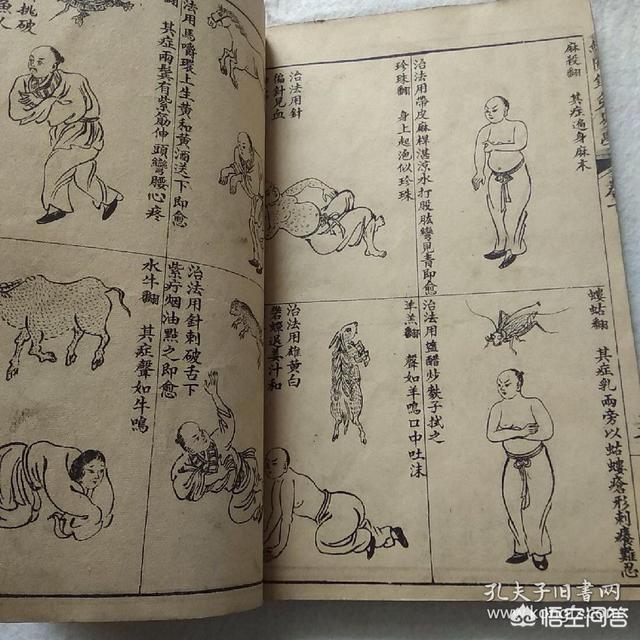 麻殺翻　其症遍身麻木
治法用帶皮麻桿湛涼水打股肱彎見青即愈
珍珠翻　身上起疱似珍珠
治法用針
徧針見血
螻蛄翻　其症乳兩旁以蛄螻瘡形刺癢難忍
治法用醋炒麩子拭之
羊羔翻　聲如羊鳴口中吐沫
治法用雄黃白
礬蟬退姜汁和
治法用馬嚼環上生黃和黃酒送下即愈
翻　其症兩鬢有紫筋伸頭彎腰心疼
挑破
人
治法用針刺破舌下
紫疔烟油點之即愈
水牛翻　其症聲如牛鳴
孔夫子旧书网
悟空问答